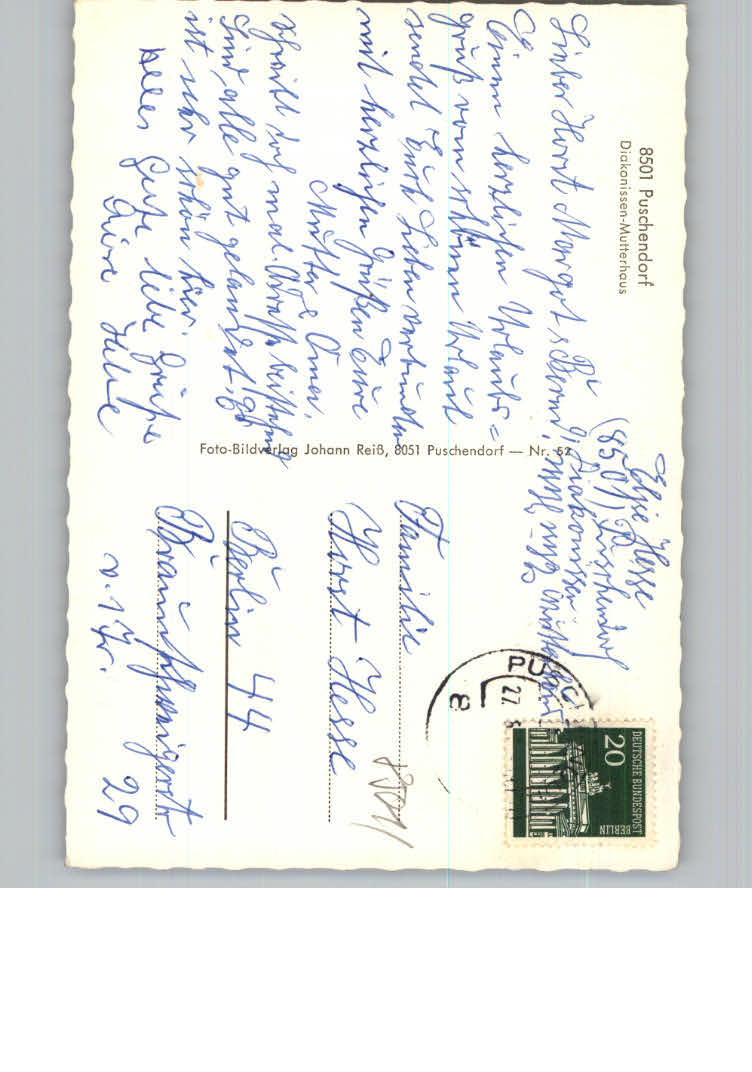 8501 Puschendorf
Diakonissen-Mutterhaus
Lieber Horst Margot & Bernd,
Einen herzlichen Urlaubs=
gruß vom schönen Urlaub
sendet Euch Lieben verbunden
mit herzlichen Grüßen Eure
Mutter & Oma.
schreibt doch mal.
sind alle gut gelandet, es
ist sehr schön hier.
Alles Gute liebe Grüße
Eure
Foto-Bildverlag Johann Reiß, 8051 Puschendorf — Nr. 52
Elsie Hesse
(8501) Puschendorf
Diakonissen
Familie
Horst Hesse
Berlin 44
Braunschweigerstr 29
v. 1 Tr.
PUSC
27.
8
DEUTSCHE BUNDESPOST
BERLIN
20